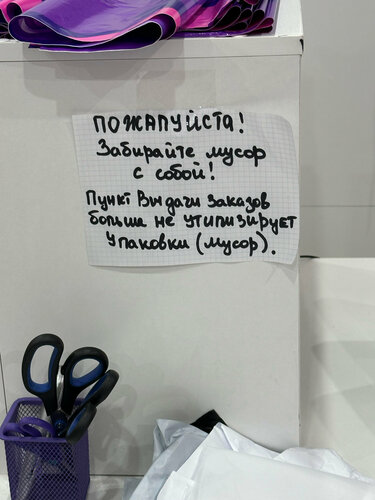 ПОЖАЛУЙСТА!
Забирайте мусор
с собой!
Пункт Выдачи Заказов
больше не утилизирует
Упаковки (мусор).